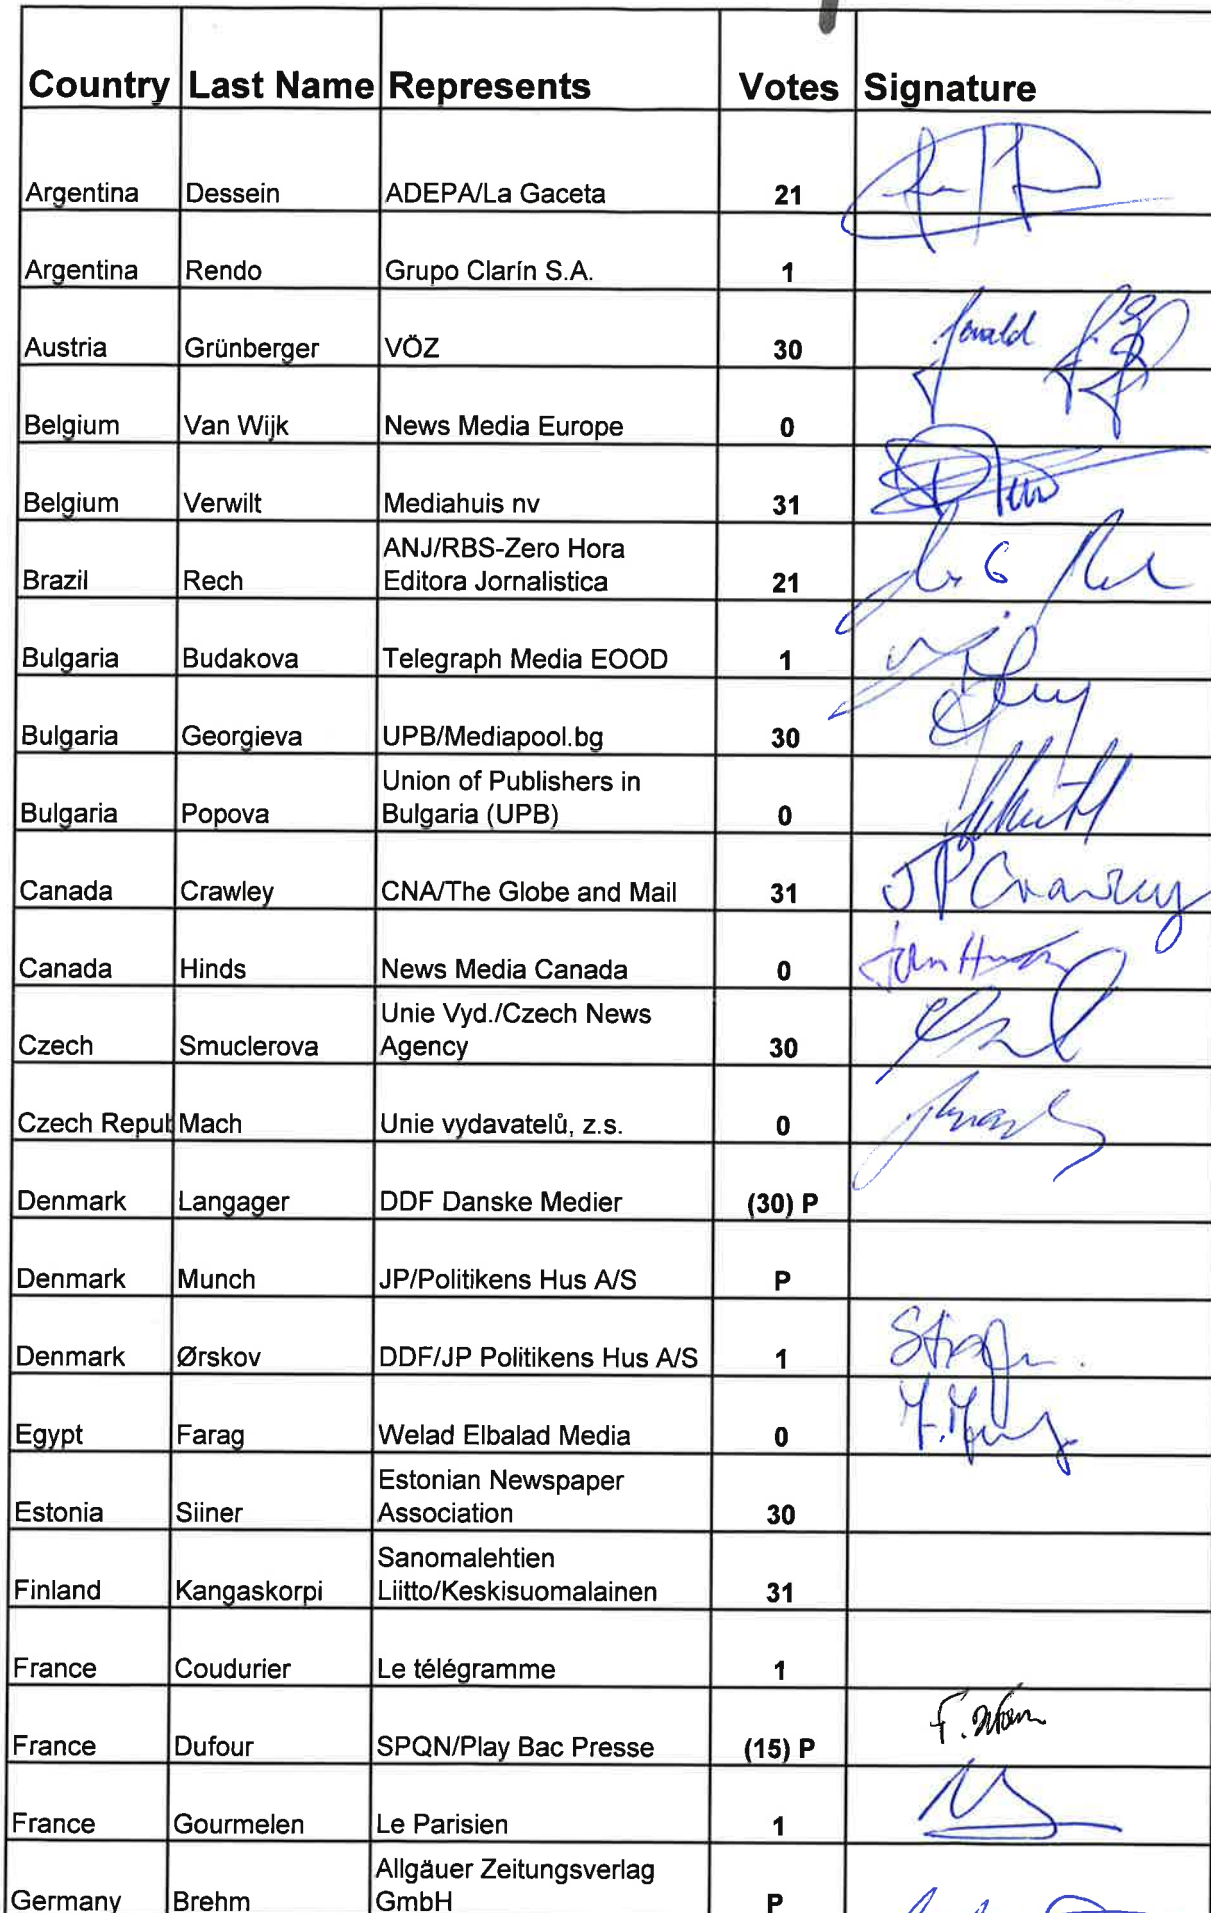 Country Last Name Represents Votes Signature
Argentina Dessein ADEPA/La Gaceta 21
Argentina Rendo Grupo Clarín S.A. 1
Austria Grünberger VÖZ 30
Belgium Van Wijk News Media Europe 0
Belgium Verwilt Mediahuis nv 31
ANJ/RBS-Zero Hora
Brazil Rech Editora Jornalistica 21
Bulgaria Budakova Telegraph Media EOOD 1
Bulgaria Georgieva UPB/Mediapool.bg 30
Union of Publishers in
Bulgaria Popova Bulgaria (UPB) 0
Canada Crawley CNA/The Globe and Mail 31 JP Crawley
Canada Hinds News Media Canada 0
Unie Vyd./Czech News
Czech Smuclerova Agency 30
Czech Repub Mach Unie vydavatelů, z.s. 0
Denmark Langager DDF Danske Medier (30) P
Denmark Munch JP/Politikens Hus A/S P
Denmark Ørskov DDF/JP Politikens Hus A/S 1
Egypt Farag Welad Elbalad Media 0
Estonian Newspaper
Estonia Siiner Association 30
Sanomalehtien
Finland Kangaskorpi Liitto/Keskisuomalainen 31
France Coudurier Le télégramme 1
France Dufour SPQN/Play Bac Presse (15) P
France Gourmelen Le Parisien 1
Allgäuer Zeitungsverlag
Germany Brehm GmbH P